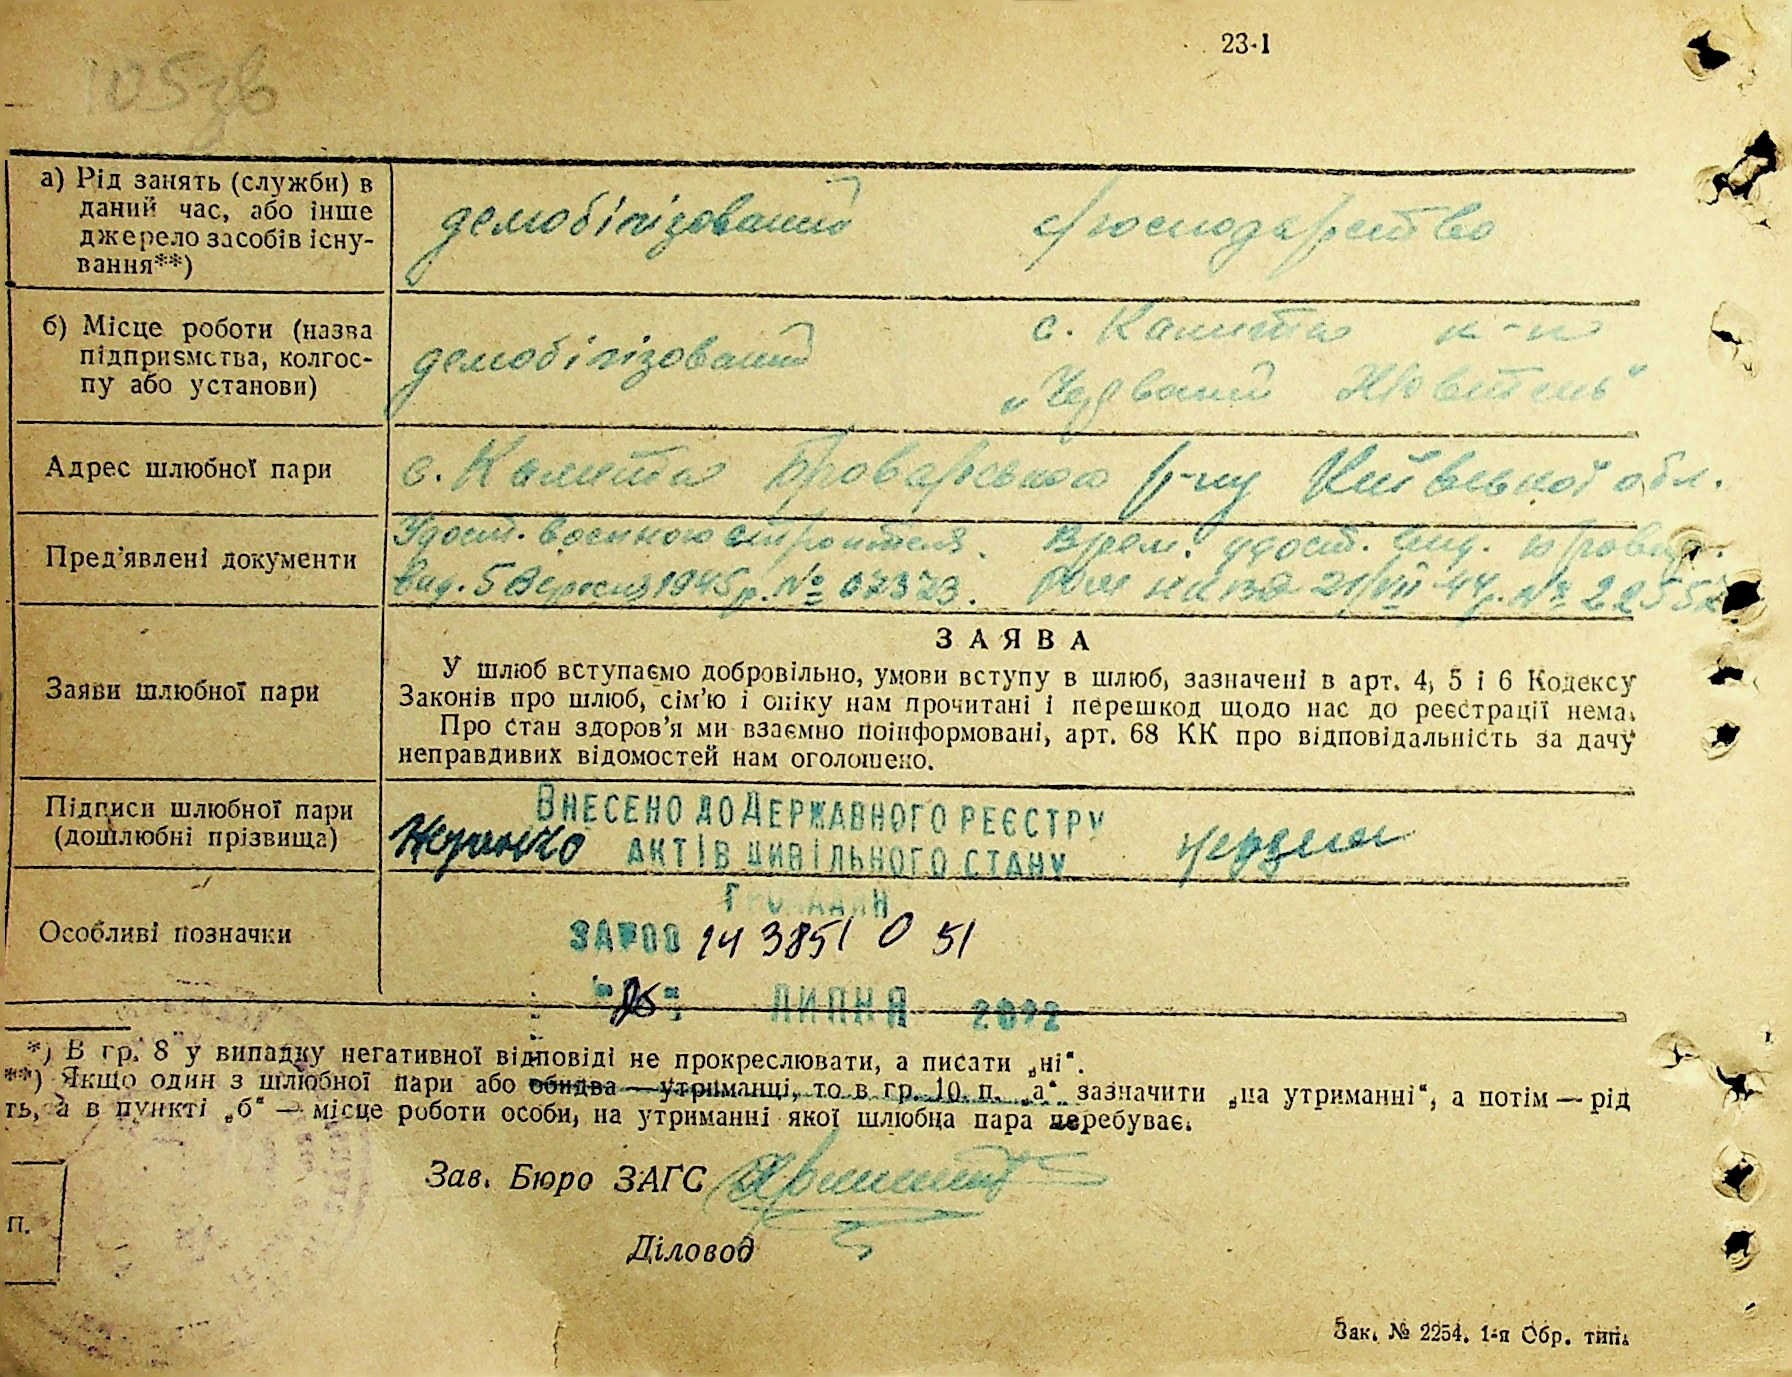 23-1
105зв
а) Рід занять (служби) в
даний час, або інше
джерело засобів існу-
вання**)
демобілізований
с/господарство
б) Місце роботи (назва
підприємства, колгос-
пу або установи)
демобілізований
с. Калита к-п
„Червоний Жовтень"
Адрес шлюбної пари
с. Калита Броварського р-ну Київської обл.
Пред'явлені документи
Удост. военного строителя. Врем. удост. вид.
вид. 5 Вересня 1945 р. № 21/VII-44р. №
ЗАЯВА
Заяви шлюбної пари
У шлюб вступаємо добровільно, умови вступу в шлюб, зазначені в арт. 4, 5 і 6 Кодексу
Законів про шлюб, сім'ю і опіку нам прочитані і перешкод щодо нас до реєстрації нема.
Про стан здоров'я ми взаємно поінформовані, арт. 68 КК про відповідальність за дачу
неправдивих відомостей нам оголошено.
Підписи шлюбної пари
(дошлюбні прізвища)
ВНЕСЕНО ДО ДЕРЖАВНОГО РЕЄСТРУ
АКТІВ ЦИВІЛЬНОГО СТАНУ
ГРОМАДЯН
Особливі позначки
ЗА №00 143851 0 51
ЛИПНЯ 2022
*) В гр. 8 у випадку негативної відповіді не прокреслювати, а писати „ні".
**) Якщо один з шлюбної пари або обидва — утриманці, то в гр. 10 п. „а" зазначити „на утриманні", а потім — рід
ть, а в пункті „б" — місце роботи особи, на утриманні якої шлюбна пара перебуває.
Зав. Бюро ЗАГС
П.
Діловод
Зак. № 2254. 1-я Обр. тип.